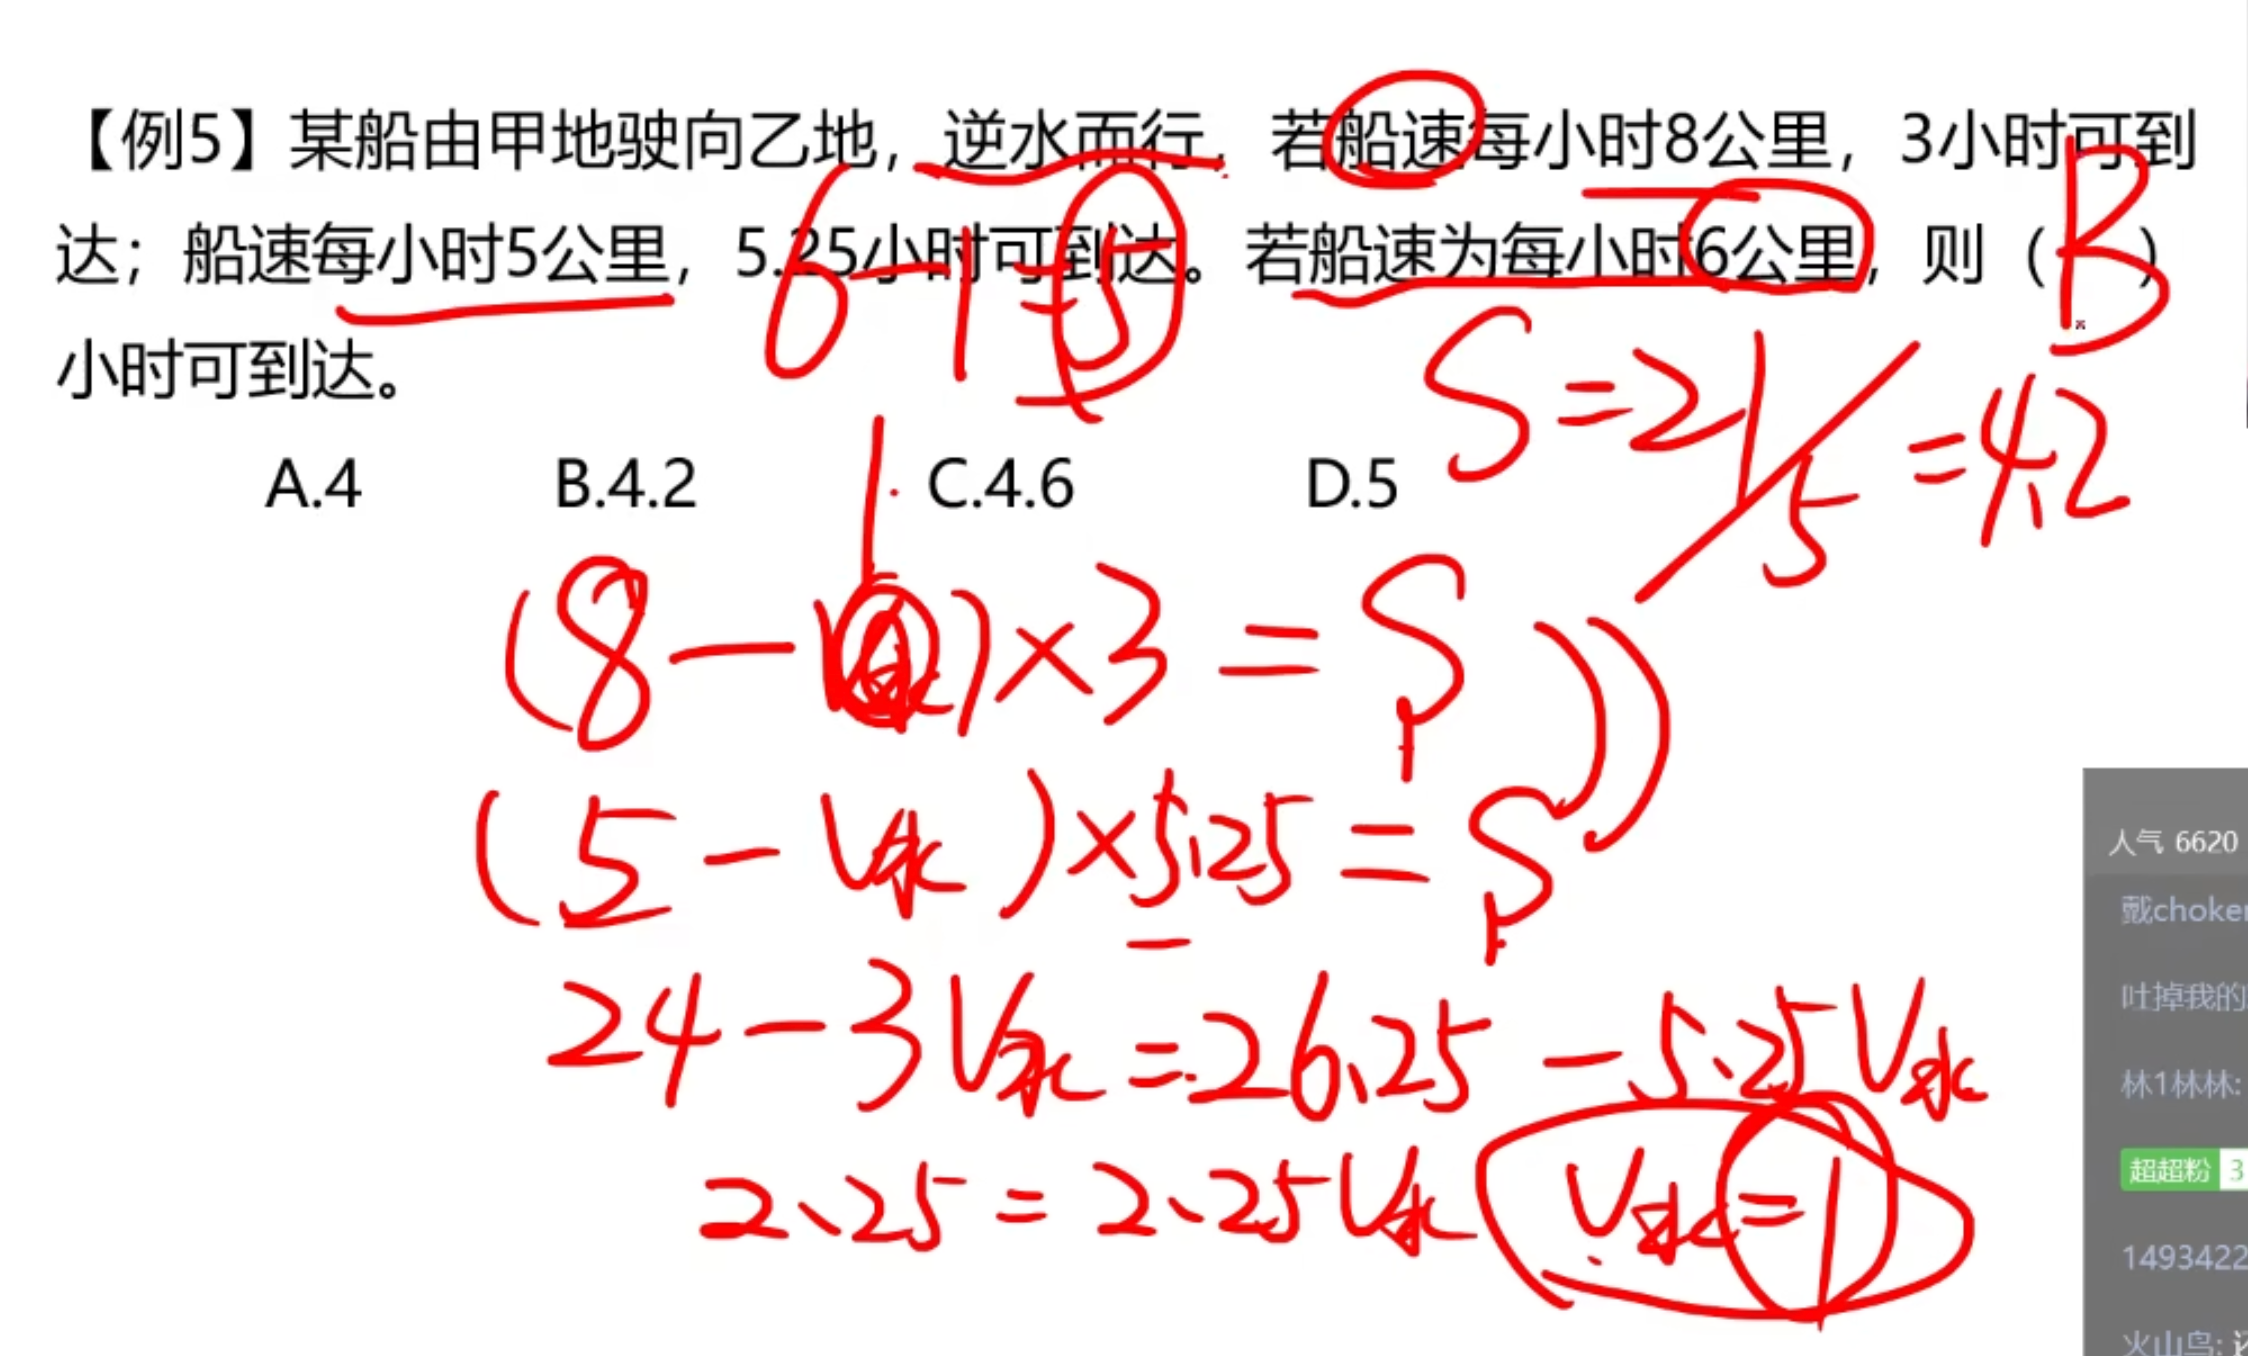 【例5】某船由甲地驶向乙地，逆水而行，若船速每小时8公里，3小时可到
达；船速每小时5公里，5.25小时可到达。若船速为每小时6公里，则（B）
小时可到达。
6-1=5
S=21/5=4.2
A.4 B.4.2 C.4.6 D.5
1
(8-V水)×3=S
(5-V水)×5.25=S
24-3V水=26.25-5.25V水
2.25=2.25V水 V水=1
人气 6620
戴choker
吐掉我的
林1林林:
超超粉 3
1493422
火山鸟: